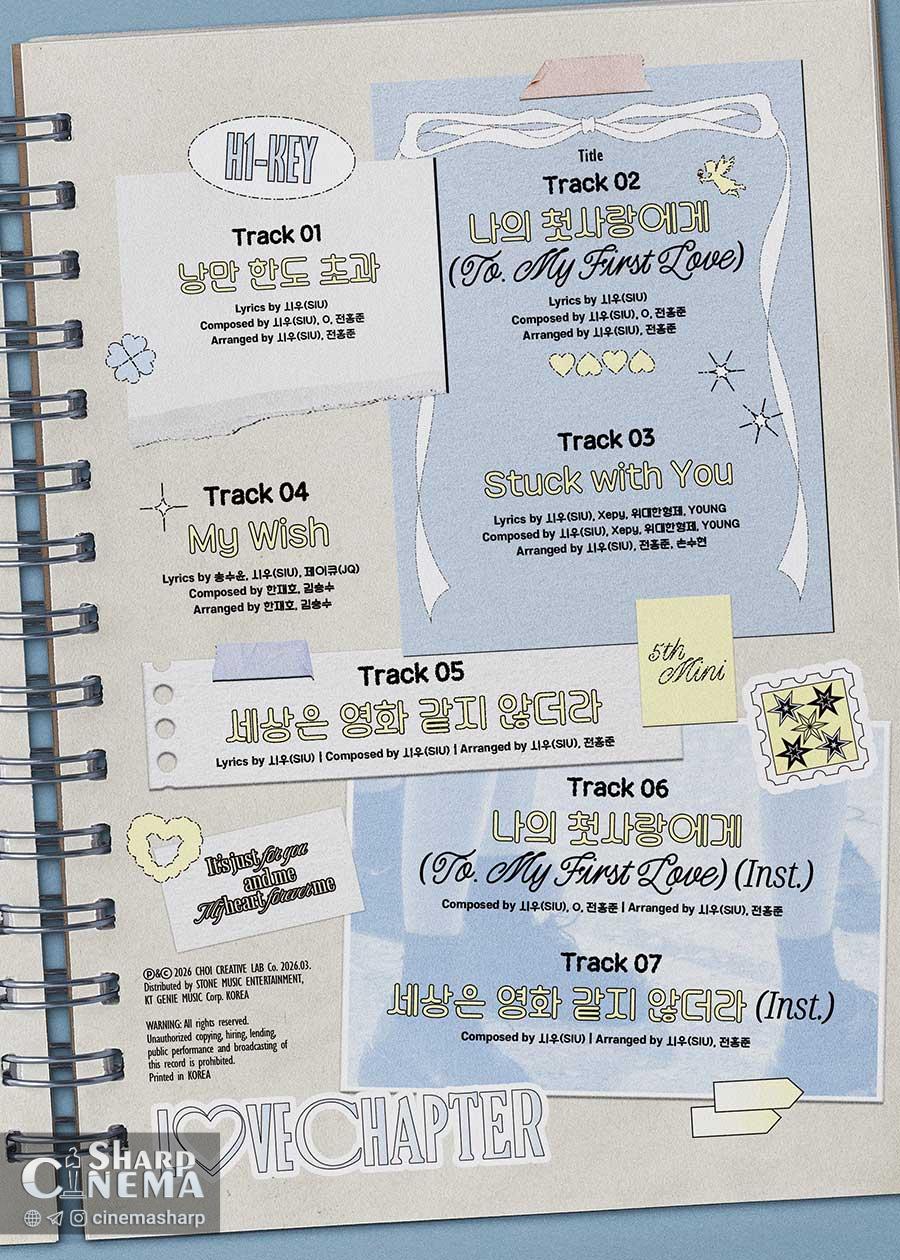 H1-KEY
Track 01
낭만 한도 초과
Lyrics by 시우(SIU)
Composed by 시우(SIU), O, 전홍준
Arranged by 시우(SIU), 전홍준
Title
Track 02
나의 첫사랑에게
(To. My First Love)
Lyrics by 시우(SIU)
Composed by 시우(SIU), O, 전홍준
Arranged by 시우(SIU), 전홍준
Track 03
Stuck with You
Lyrics by 시우(SIU), Xepy, 위대한형제, YOUNG
Composed by 시우(SIU), Xepy, 위대한형제, YOUNG
Arranged by 시우(SIU), 전홍준, 손수현
Track 04
My Wish
Lyrics by 송수윤, 시우(SIU), 제이큐(JQ)
Composed by 한재호, 김승수
Arranged by 한재호, 김승수
5th
Mini
Track 05
세상은 영화 같지 않더라
Lyrics by 시우(SIU) | Composed by 시우(SIU) | Arranged by 시우(SIU), 전홍준
Track 06
나의 첫사랑에게
(To. My First Love) (Inst.)
Composed by 시우(SIU), O, 전홍준 | Arranged by 시우(SIU), 전홍준
It's just for you
and me
My heart forever me
Track 07
세상은 영화 같지 않더라 (Inst.)
Composed by 시우(SIU) | Arranged by 시우(SIU), 전홍준
Ⓟ&© 2026 CHOI CREATIVE LAB Co. 2026.03.
Distributed by STONE MUSIC ENTERTAINMENT,
KT GENIE MUSIC Corp. KOREA
WARNING: All rights reserved.
Unauthorized copying, hiring, lending,
public performance and broadcasting of
this record is prohibited.
Printed in KOREA
LOVE CHAPTER
SHARP
CINEMA
cinemasharp